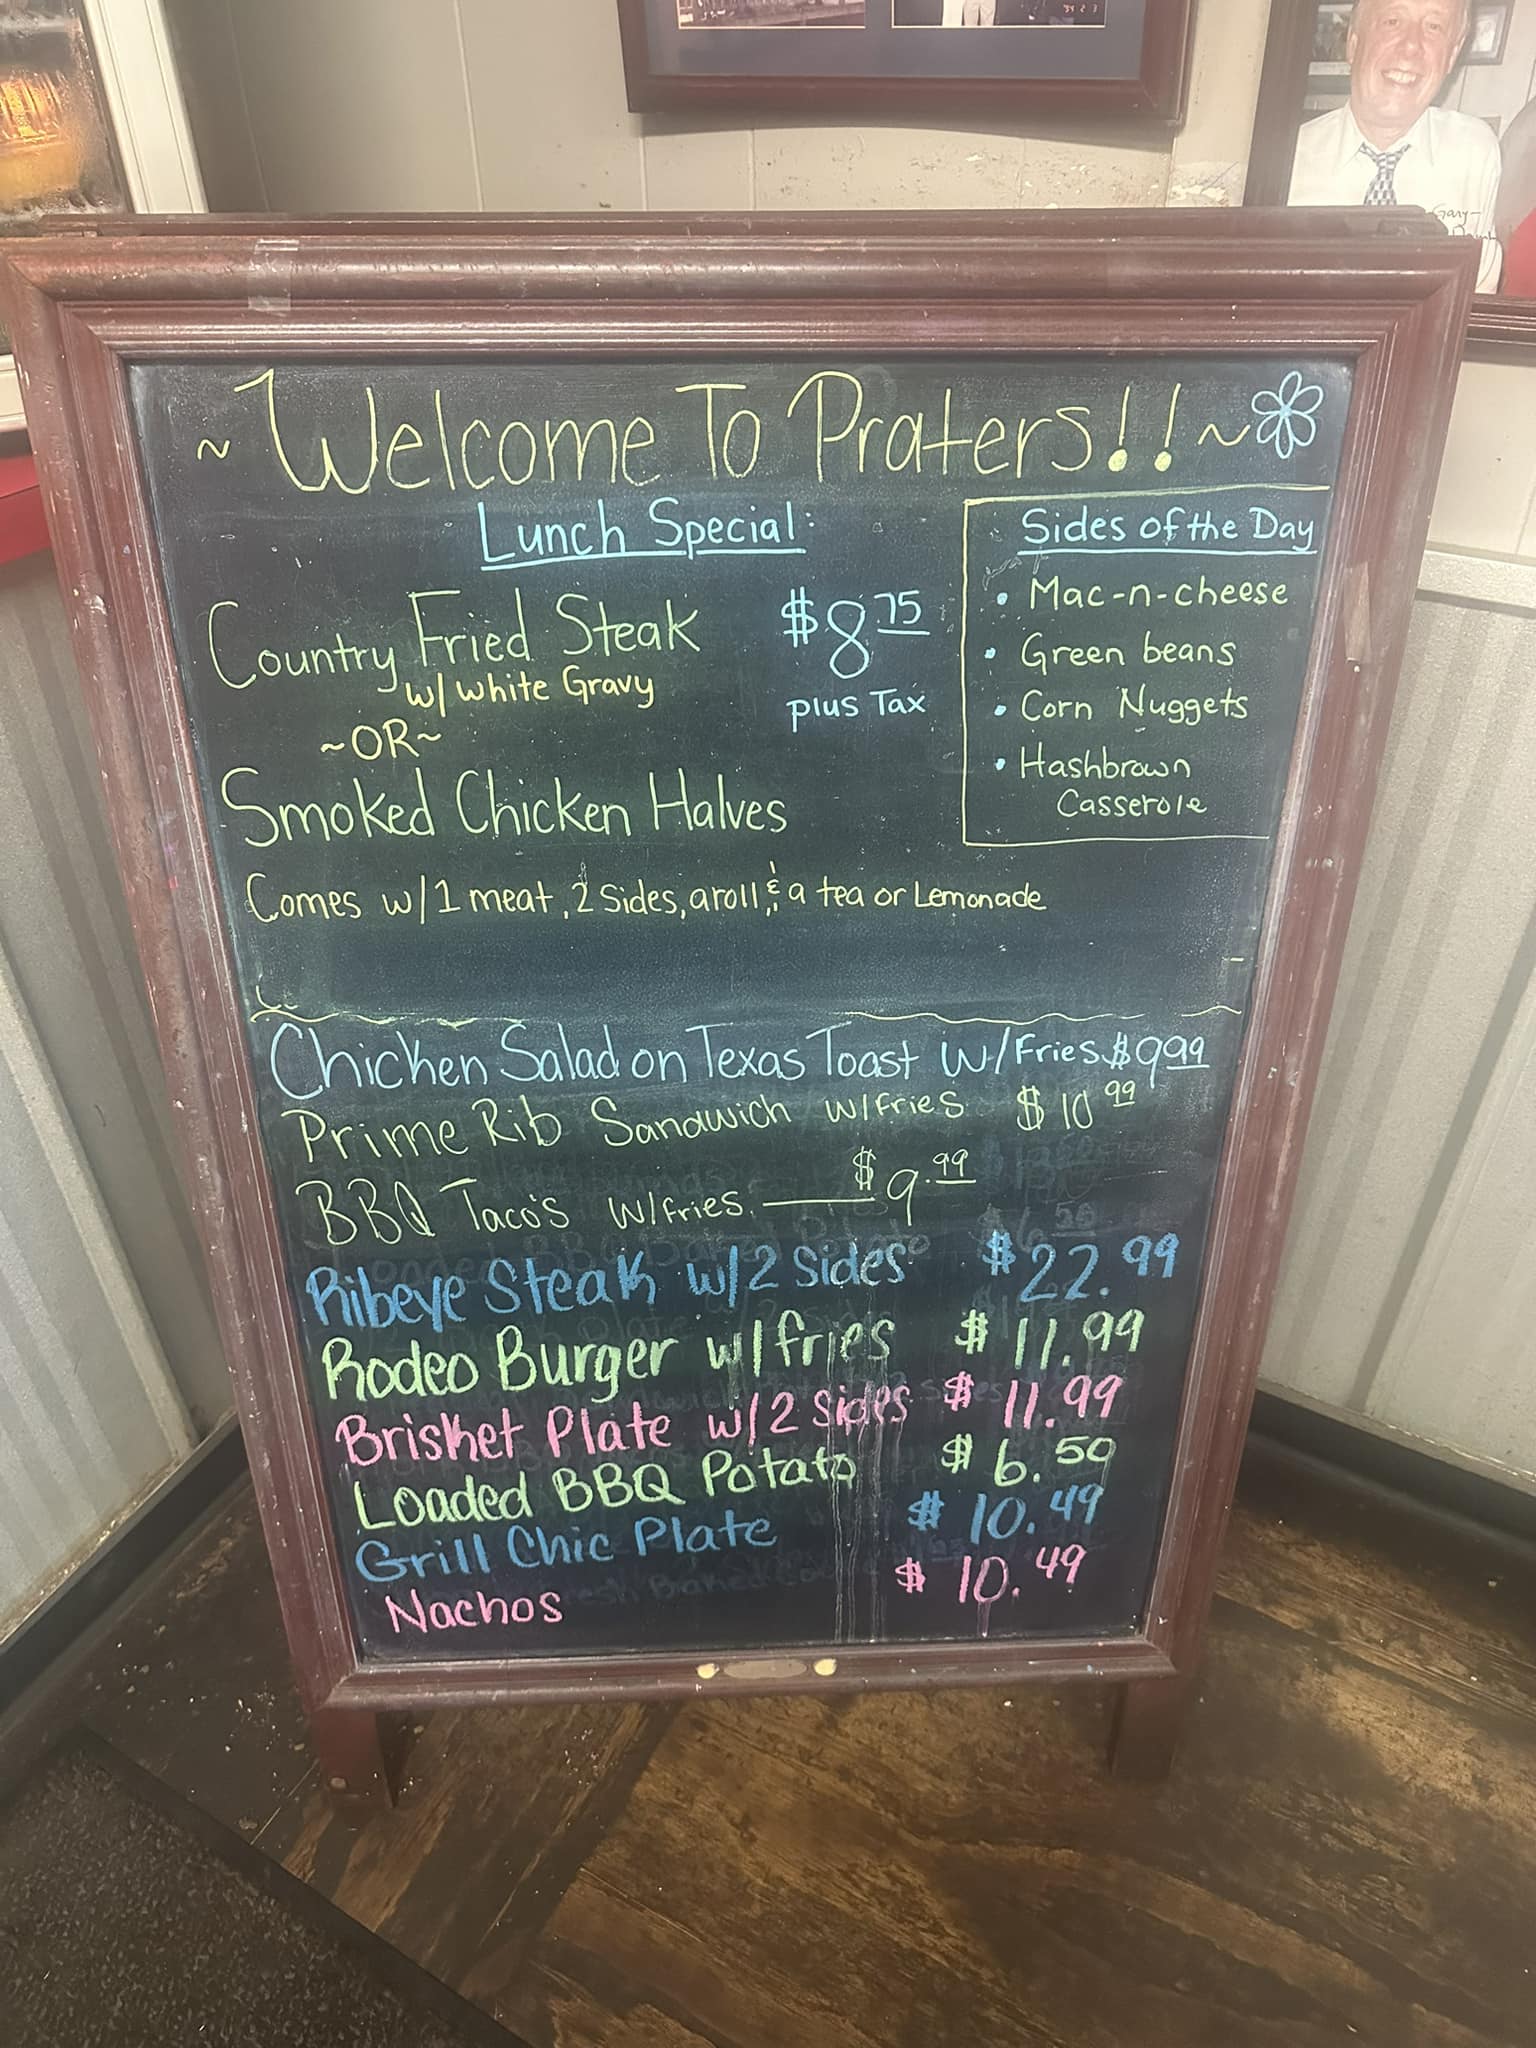 ~ Welcome To Praters!! ~
Lunch Special:
Country Fried Steak
w/ white Gravy
$8 75
plus Tax
~OR~
Smoked Chicken Halves
Comes w/1 meat, 2 sides, a roll, & a tea or Lemonade
Sides of the Day
• Mac-n-cheese
• Green beans
• Corn Nuggets
• Hashbrown
Casserole
Chicken Salad on Texas Toast w/Fries $9 99
Prime Rib Sandwich w/fries $10 99
BBQ Taco's w/fries. $9.99
Ribeye Steak w/2 Sides $22.99
Rodeo Burger w/fries $11.99
Brisket Plate w/2 Sides $11.99
Loaded BBQ Potato $6.50
Grill Chic Plate $10.49
Nachos $10.49
Gary-